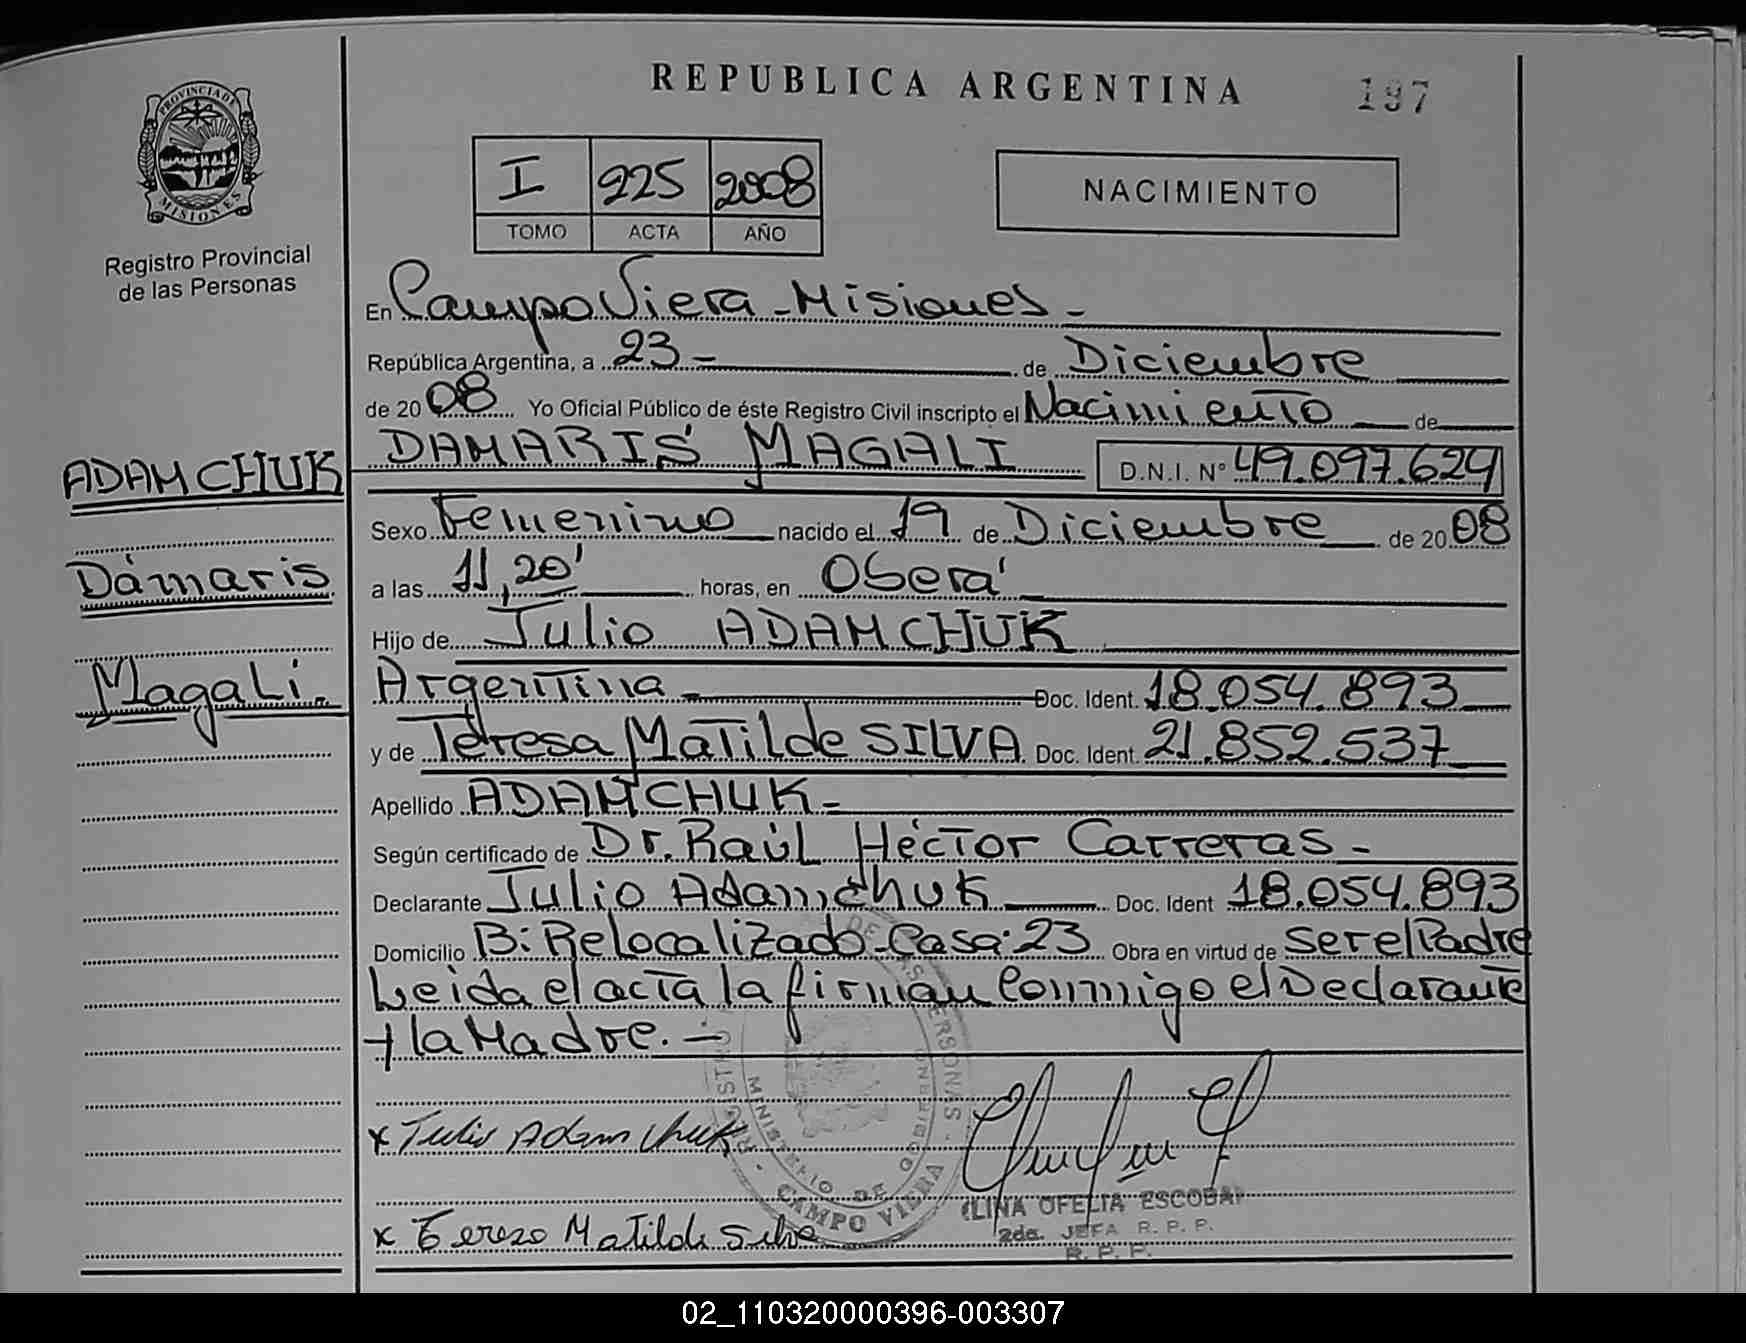 REPUBLICA ARGENTINA
197
PROVINCIA DE
MISIONES
Registro Provincial
de las Personas
I 225 2008
TOMO ACTA AÑO
NACIMIENTO
En Campo Viera - Misiones -
República Argentina, a 23 - de Diciembre
de 2008 Yo Oficial Público de éste Registro Civil inscripto el Nacimiento de
DAMARIS MAGALI D.N.I. Nº 49.097.624
ADAMCHUK
Dámaris
Magali.
Sexo Femenino nacido el 19 de Diciembre de 2008
a las 11,20' horas, en Oberá
Hijo de Julio ADAMCHUK
Argentina - Doc. Ident. 18.054.893
y de Teresa Matilde SILVA Doc. Ident. 21.852.537
Apellido ADAMCHUK -
Según certificado de Dr. Raúl Héctor Carreras -
Declarante Julio Adamchuk Doc. Ident 18.054.893
Domicilio B: Relocalizado - Casa: 23 Obra en virtud de ser el Padre
Leida el acta la firman Conmigo el Declarante
y la Madre. -
x Julio Adamchuk
x Tereza Matilde Silva
MINISTERIO DE GOBIERNO
CAMPO VIERA
LINA OFELIA ESCOBA
2da. JEFA R. P. P.
R. P. P.
02_110320000396-003307